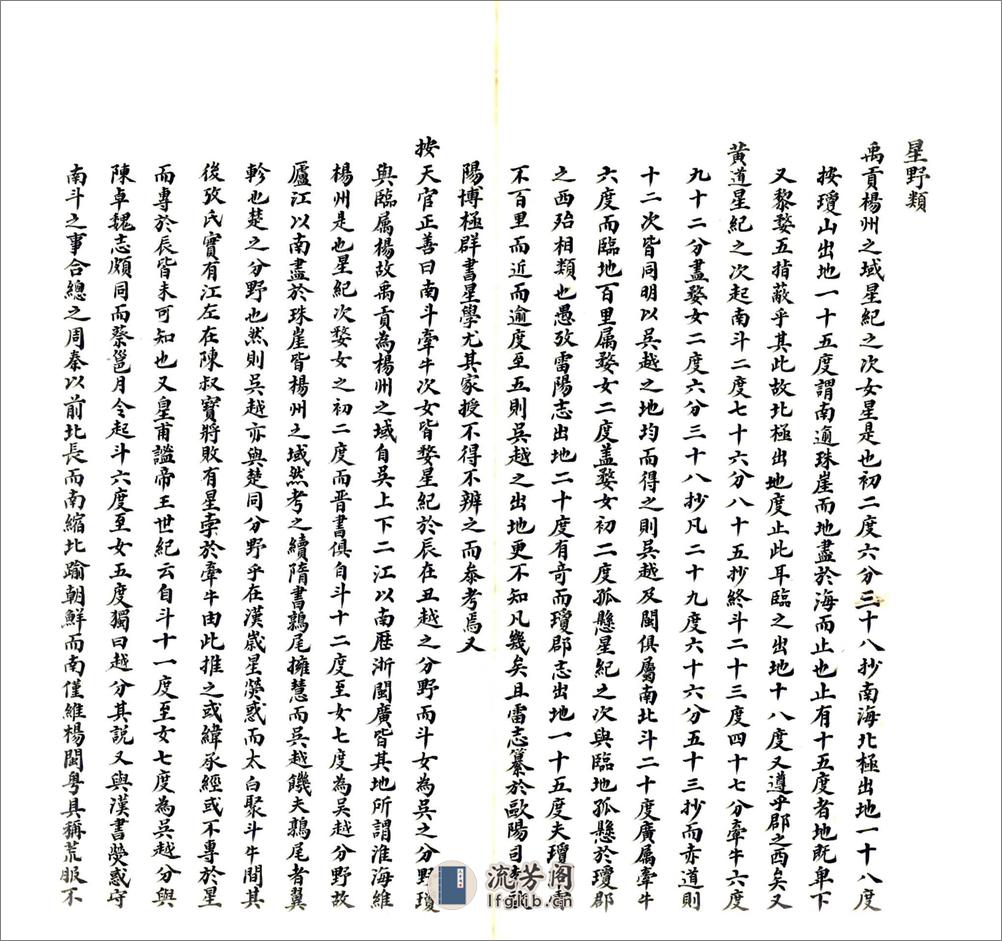 星野類
禹貢楊州之域星紀之次女星是也初二度六分三十八抄南海北極出地一十八度
按瓊山出地一十五度謂南逾珠崖而地盡於海而止也止有十五度者地既卑下
又黎婺五指蔽乎其此故北極出地度止此耳臨之出地十八度又遵乎郡之西矣又
黄道星紀之次起南斗二度七十六分八十五抄終斗二十三度四十七分牽牛六度
九十二分盡婺女二度六分三十八抄凡二十九度六十六分五十三抄而赤道則
十二次皆同明以吳越之地均而得之則吳越及閩俱屬南北斗二十度廣属牽牛
六度而臨地百里属婺女二度蓋婺女初二度孤懸星紀之次與臨地孤懸於瓊郡
之西殆相類也愚攷雷陽志出地二十度有奇而瓊郡志出地一十五度夫瓊
不百里而近而逾度至五則吳越之出地更不知凡幾矣且雷志纂於歐陽司
陽博極群書星學尤其家授不得不辨之而叅考焉又
按天官正善曰南斗牽牛次女皆婺星紀於辰在丑越之分野而斗女為吳之分野瓊
與臨属楊故禹貢為楊州之域自吳上下二江以南歷浙閩廣皆其地所謂淮海維
楊州是也星紀次婺女之初二度而晋書俱自斗十二度至女七度為吳越分野故
廬江以南盡於珠崖皆楊州之域然考之續隋書鶉尾擁慧而吳越饑夫鶉尾者翼
軫也楚之分野也然則吳越亦與楚同分野乎在漢歲星熒惑而太白聚斗牛間其
後攷氏實有江左在陳叔寶將敗有星孛於牽牛由此推之或緯承經或不專於星
而專於辰皆未可知也又皇甫謐帝王世紀云自斗十一度至女七度為吳越分與
陳卓魏志頗同而蔡邕月令起斗六度至女五度獨曰越分其説又與漢書熒惑守
南斗之事合總之周秦以前北長而南縮北踰朝鮮而南僅維楊閩粤具稱荒服不
流芳阁
lfglib.cn